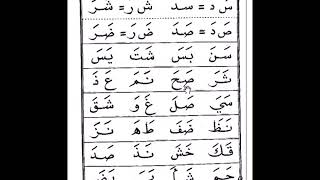 سَ دَ = سَدَ شَ رَ = شَرَ
صَ دَ = صَدَ ضَ رَ = ضَرَ
سَنَ بَسَ شَتَ يَسَ
ثَرَ صَحَ نَمَ عَذَ
سَيَ صَلَ غَوَ شَقَ
نَظَ ضَفَ طَهَ نَزَ
قَكَ خَشَ نَذَ صَدَ